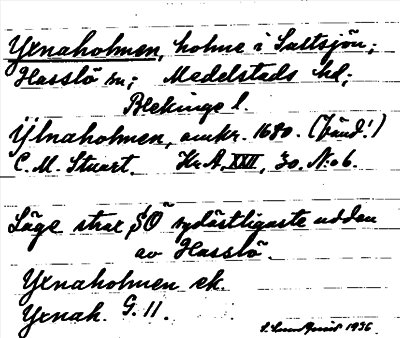 Yxnaholmen, holme i Saltsjön;
Hasslö sn; Medelstads hd;
Blekinge l.
Ÿlnaholmen, omkr. 1680. (Länd!)
C. M. Stuart. Kr. A, XXII, 30. N:o 6.
Läge strax SÖ sydöstligaste udden
av Hasslö.
Yxnaholmen ek.
Yxnah. G. 11.
1936